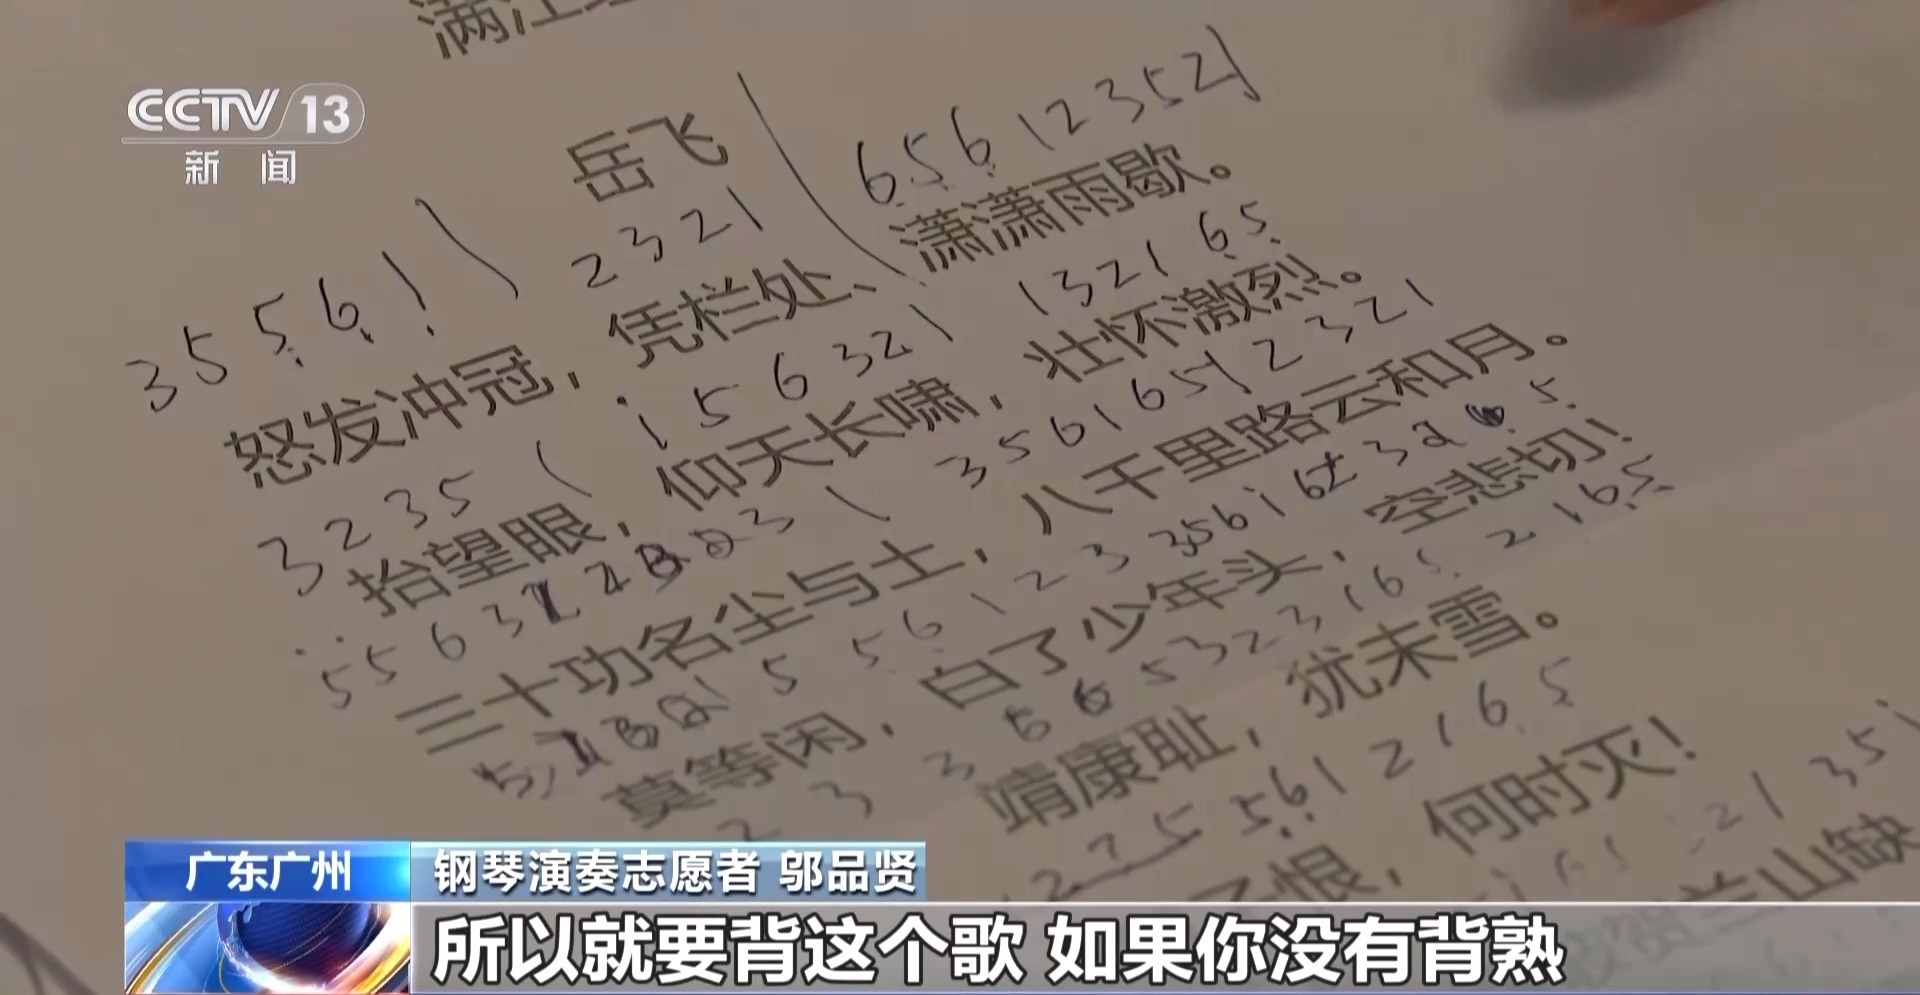 满江红
CCTV 13
新闻
岳飞
3 5 5 6 1 2 3 2 1 6 5 6 1 2 3 5 2
怒发冲冠，凭栏处、潇潇雨歇。
3 2 3 5 1 5 6 3 2 1 1 3 2 1 6 5
抬望眼，仰天长啸，壮怀激烈。
5 5 6 3 3 5 6 1 6 5 1 2 3 2 1
三十功名尘与土，八千里路云和月。
5 5 6 1 2 3 3 5 6 1 6 3 2 5
莫等闲，白了少年头，空悲切！
2 3 3 5 6 5 3 2 3 1 6 5 2 1 6 5
靖康耻，犹未雪。
2 2 5 5 6 1 2 1 6 5
子恨，何时灭！
2 1 3 5 1
贺兰山缺
广东广州
钢琴演奏志愿者 邬品贤
所以就要背这个歌 如果你没有背熟